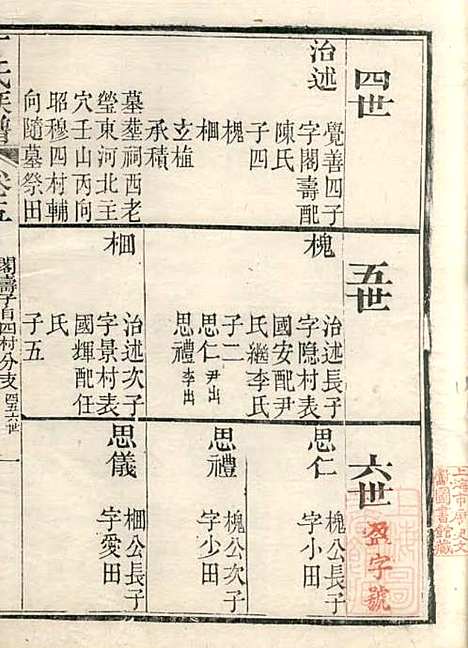 四世
治述
覺善四子
字閣壽配
陳氏
子四
槐
棞
玄植
承積
墓葬祠西老
瑩東河北王
穴壬山丙向
昭穆四村輔
向隨墓祭田
五世
槐
治述長子
字隐村表
國安配尹
氏繼李氏
子二
思仁尹出
思禮李出
棞
治述次子
字景村表
國輝配任
氏
子五
六世
思仁
槐公長子
字小田
思禮
槐公次子
字少田
思儀
棞公長子
字愛田
氏族譜
卷五
閣壽子百四村分支四五六世
一
字號
上海市歷史文
獻圖書館藏